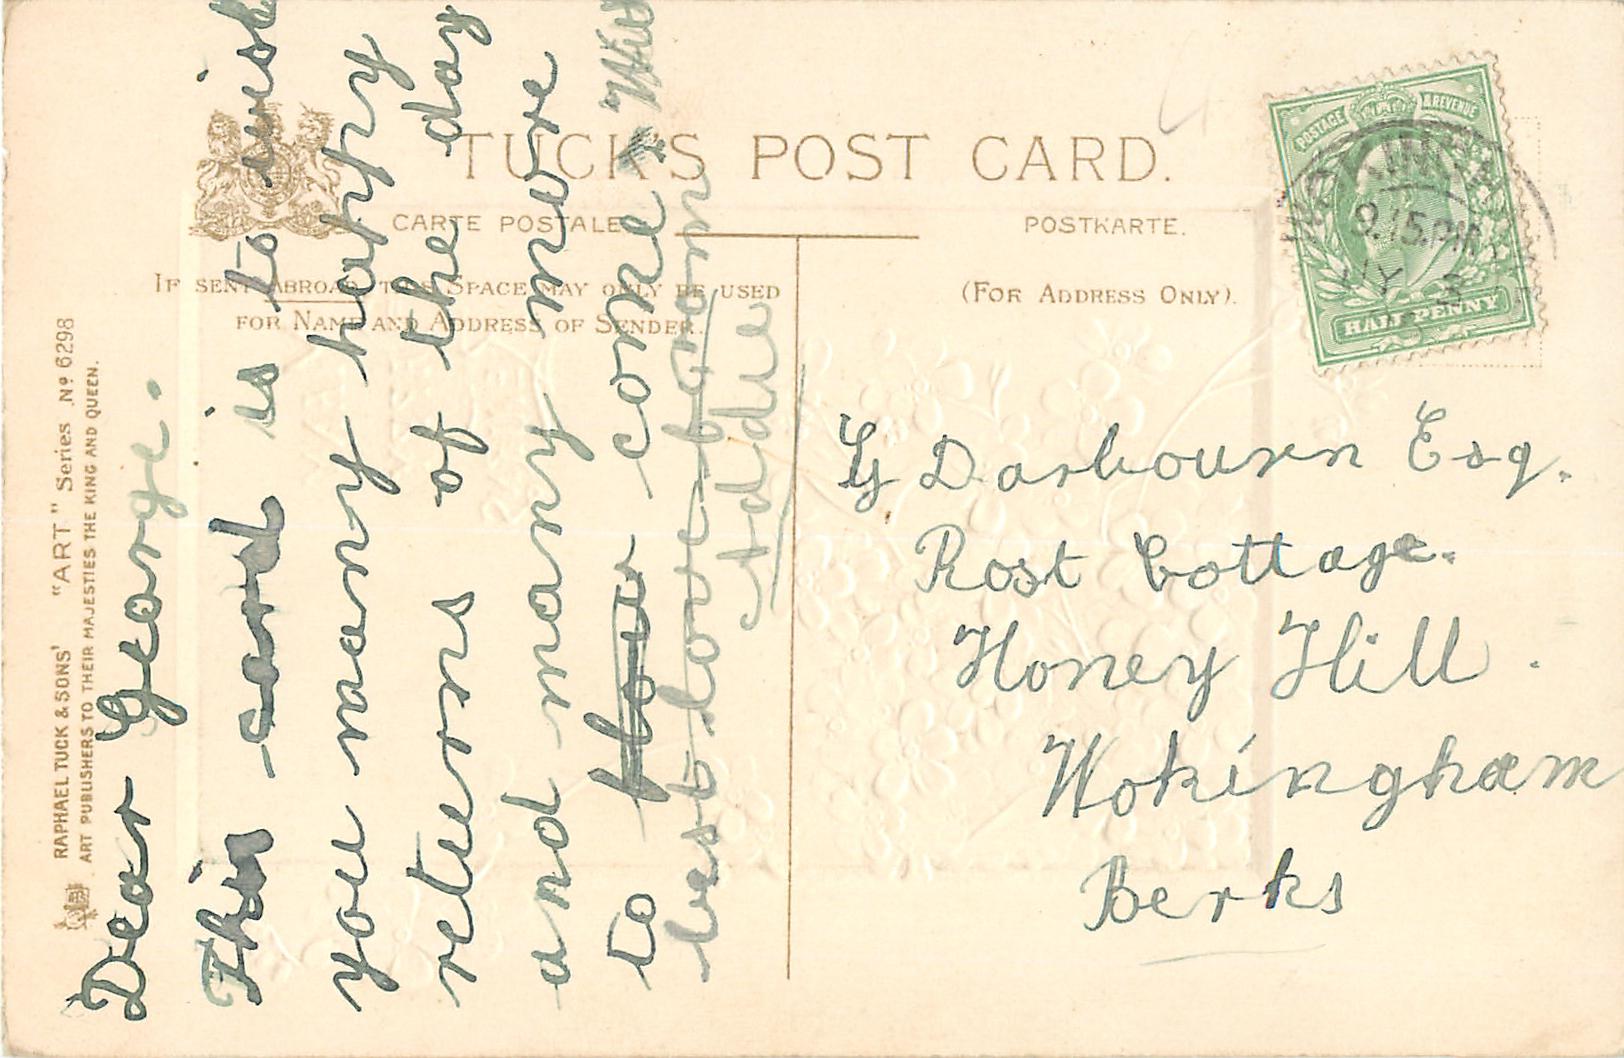 TUCK'S POST CARD.
CARTE POSTALE
POSTKARTE.
IF SENT ABROAD, THIS SPACE MAY ONLY BE USED
FOR NAME AND ADDRESS OF SENDER.
(FOR ADDRESS ONLY).
RAPHAEL TUCK & SONS' "ART" Series Nº 6298
ART PUBLISHERS TO THEIR MAJESTIES THE KING AND QUEEN.
Dear George.
This card is to wish
you many happy
returns of the day
and many more
to come. With
best love from
Addie
G Darbourn Esq.
Rost Cottage.
Honey Hill.
Wokingham
Berks
POSTAGE & REVENUE
HALFPENNY
9.15.PM
MY 3